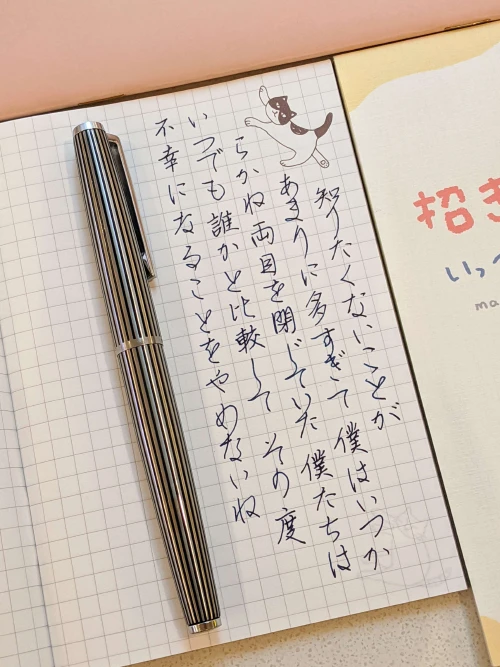 知りたくないことが
あまりに多すぎて 僕はいつか
らかね両目を閉じていた 僕たちは
いつでも誰かと比較して その度
不幸になることをやめないね
招
いっ
ma